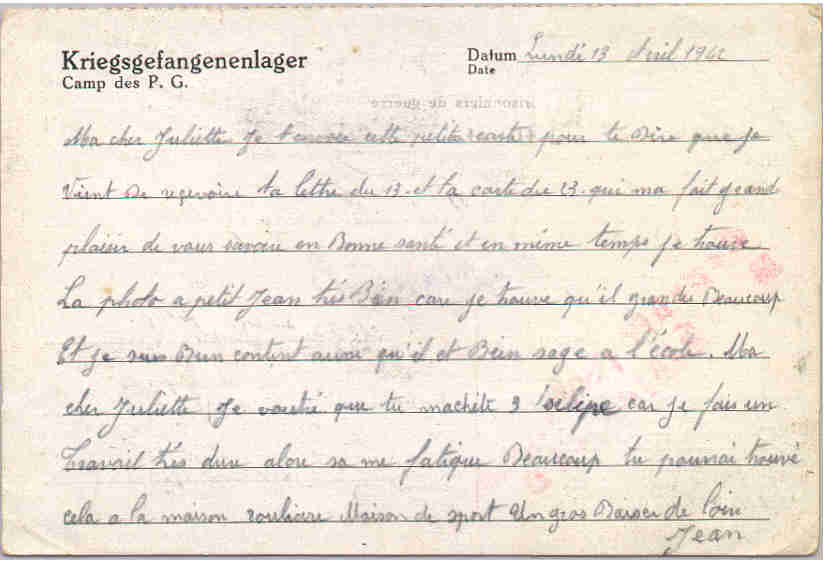 Kriegsgefangenenlager
Camp des P. G.
Datum Lundi 13 Avril 1942
Date
Ma cher Juliette Je t'envoie cette petite carte pour te Dire que Je
Vient De reçevoire ta lettre du 13. et ta carte du 23. qui ma fait grand
plaisir de vous savoir en Bonne santé et en même temps Je trouve
La photo a petit Jean très Bien care Je trouve qu'il grandi Beaucoup
Et Je suis Bien content aussi qu'il et Bien sage a l'école. Ma
cher Juliette Je que tu machète 3 Selipe car Je fais un
Travail très dure alors sa me fatigue Beaucoup tu pourrai trouvé
cela a la maison Maison de sport Un gros Baiser de loin
Jean